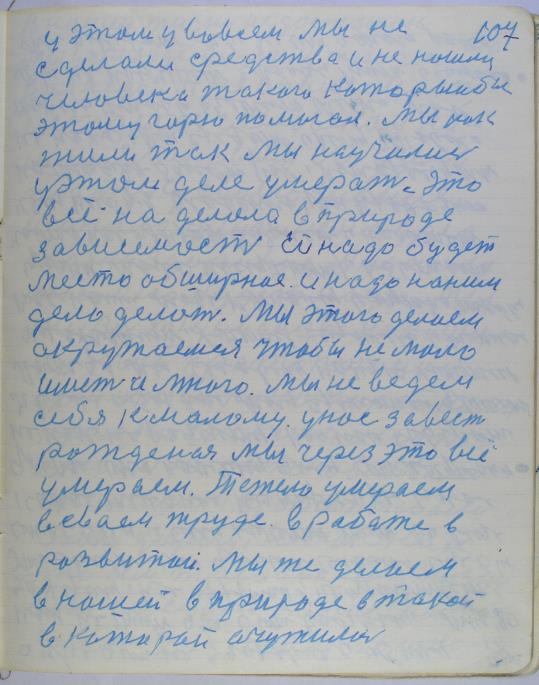 у этом у вовсем мы не 107
сделали средства и не нашли
человека такого который бы
этому горю помогал. Мы как
жили так мы научились
у этом деле умерать. Это
всё на делола в природе
зависемость ей надо будет
место обширное. и надо на ним
дело делать. Мы этого делаем
окружаемся чтобы не мало
имет и много. Мы не ведем
себя к малому. у нас завест
рожденая мы через это всё
умераем. Тежело умераем
в сваем труде. в рабате в
развитой. Мы же делаем
в нашей в природе в такой
в которай очутилися